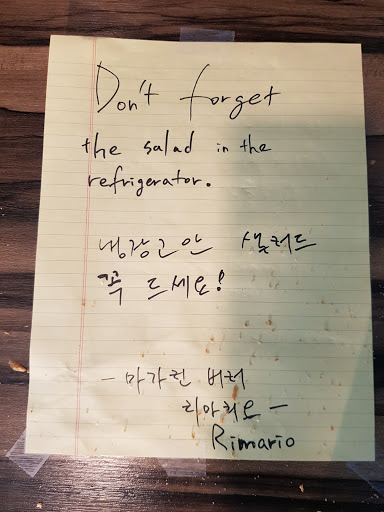 Don't forget
the salad in the
refrigerator.
냉장고안 샐러드
꼭 드세요!
- 마가린 버터
리마리오 -
Rimario